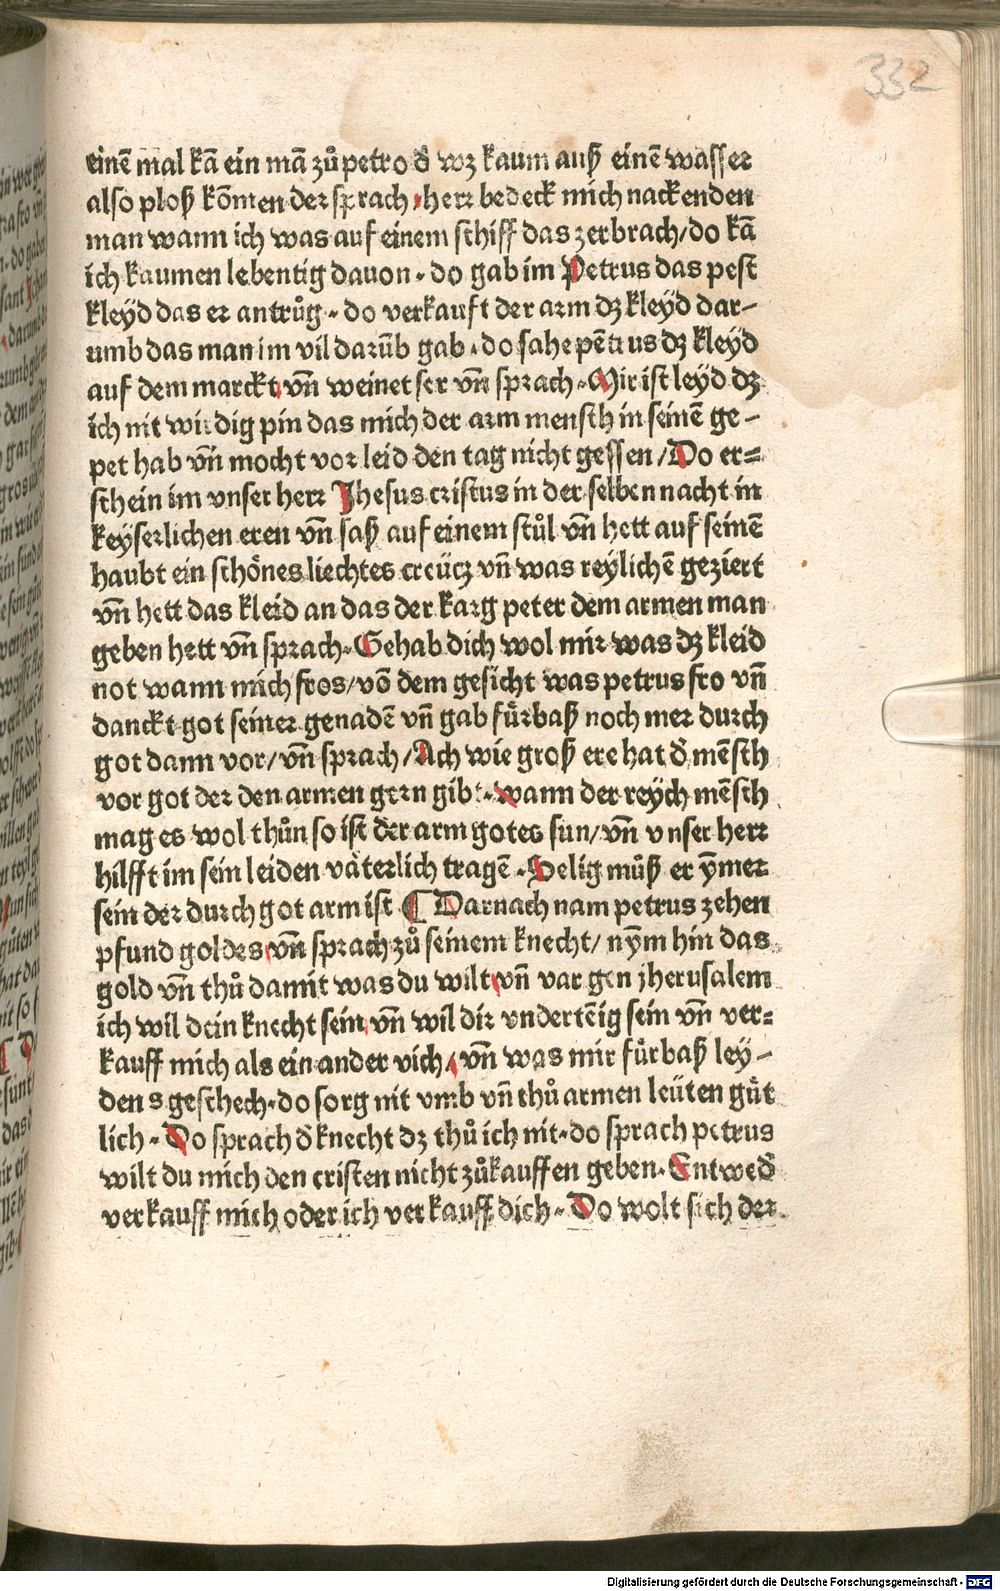 332
einē mal kā ein mā zů petro d̄ wz kaum auß einē wasser
also ploß kōmen der sprach, herr bedeck mich nackenden
man wann ich was auf einem schiff das zerbrach/do kā
ich kaumen lebentig dauon. do gab im Petrus das pest
kleyd das er antrůg. do verkauft der arm dz kleyd dar-
umb das man im vil darūb gab. do sahe petrus dz kleyd
auf dem marckt, vn̄ weinet ser vn̄ sprach. Mir ist leyd dz
ich nit wirdig pin das mich der arm mensch in seinē ge-
pet hab vn̄ mocht vor leid den tag nicht gessen/Do er=
schein im vnser herr Jhesus cristus in der selben nacht in
keyserlichen eren vn̄ saß auf einem stůl vn̄ hett auf seinē
haubt ein schönes liechtes creücz vn̄ was reylichē geziert
vn̄ hett das kleid an das der karg peter dem armen man
geben hett vn̄ sprach. Gehab dich wol mir was dz kleid
not wann mich fros/vō dem gesicht was petrus fro vn̄
danckt got seiner genadē vn̄ gab fürbaß noch mer durch
got dann vor/vn̄ sprach/Ach wie groß ere hat d̄ mēsch
vor got der den armen gern gibt. wann der reych mēsch
mag es wol thůn so ist der arm gotes sun/vn̄ vnser herr
hilfft im sein leiden väterlich tragē. Selig můß er ymer
sein der durch got arm ist ¶ Darnach nam petrus zehen
pfund goldes, vn̄ sprach zů seinem knecht/nym hin das
gold vn̄ thů damit was du wilt, vn̄ var gen jherusalem
ich wil dein knecht sein, vn̄ wil dir vndertēig sein vn̄ ver=
kauff mich als ein ander vich, vn̄ was mir fürbaß ley-
dens geschech. do sorg nit vmb vn̄ thů armen leüten güt
lich. Do sprach d̄ knecht dz thů ich nit. do sprach petrus
wilt du mich den cristen nicht zůkauffen geben. Entwed̄
verkauff mich oder ich verkauff dich. Do wolt sich der
Digitalisierung gefördert durch die Deutsche Forschungsgemeinschaft - DFG